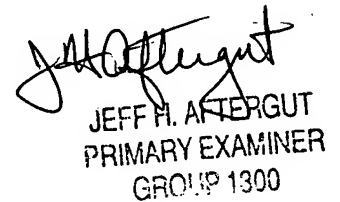 JH Aftergut
JEFF H. AFTERGUT
PRIMARY EXAMINER
GROUP 1300